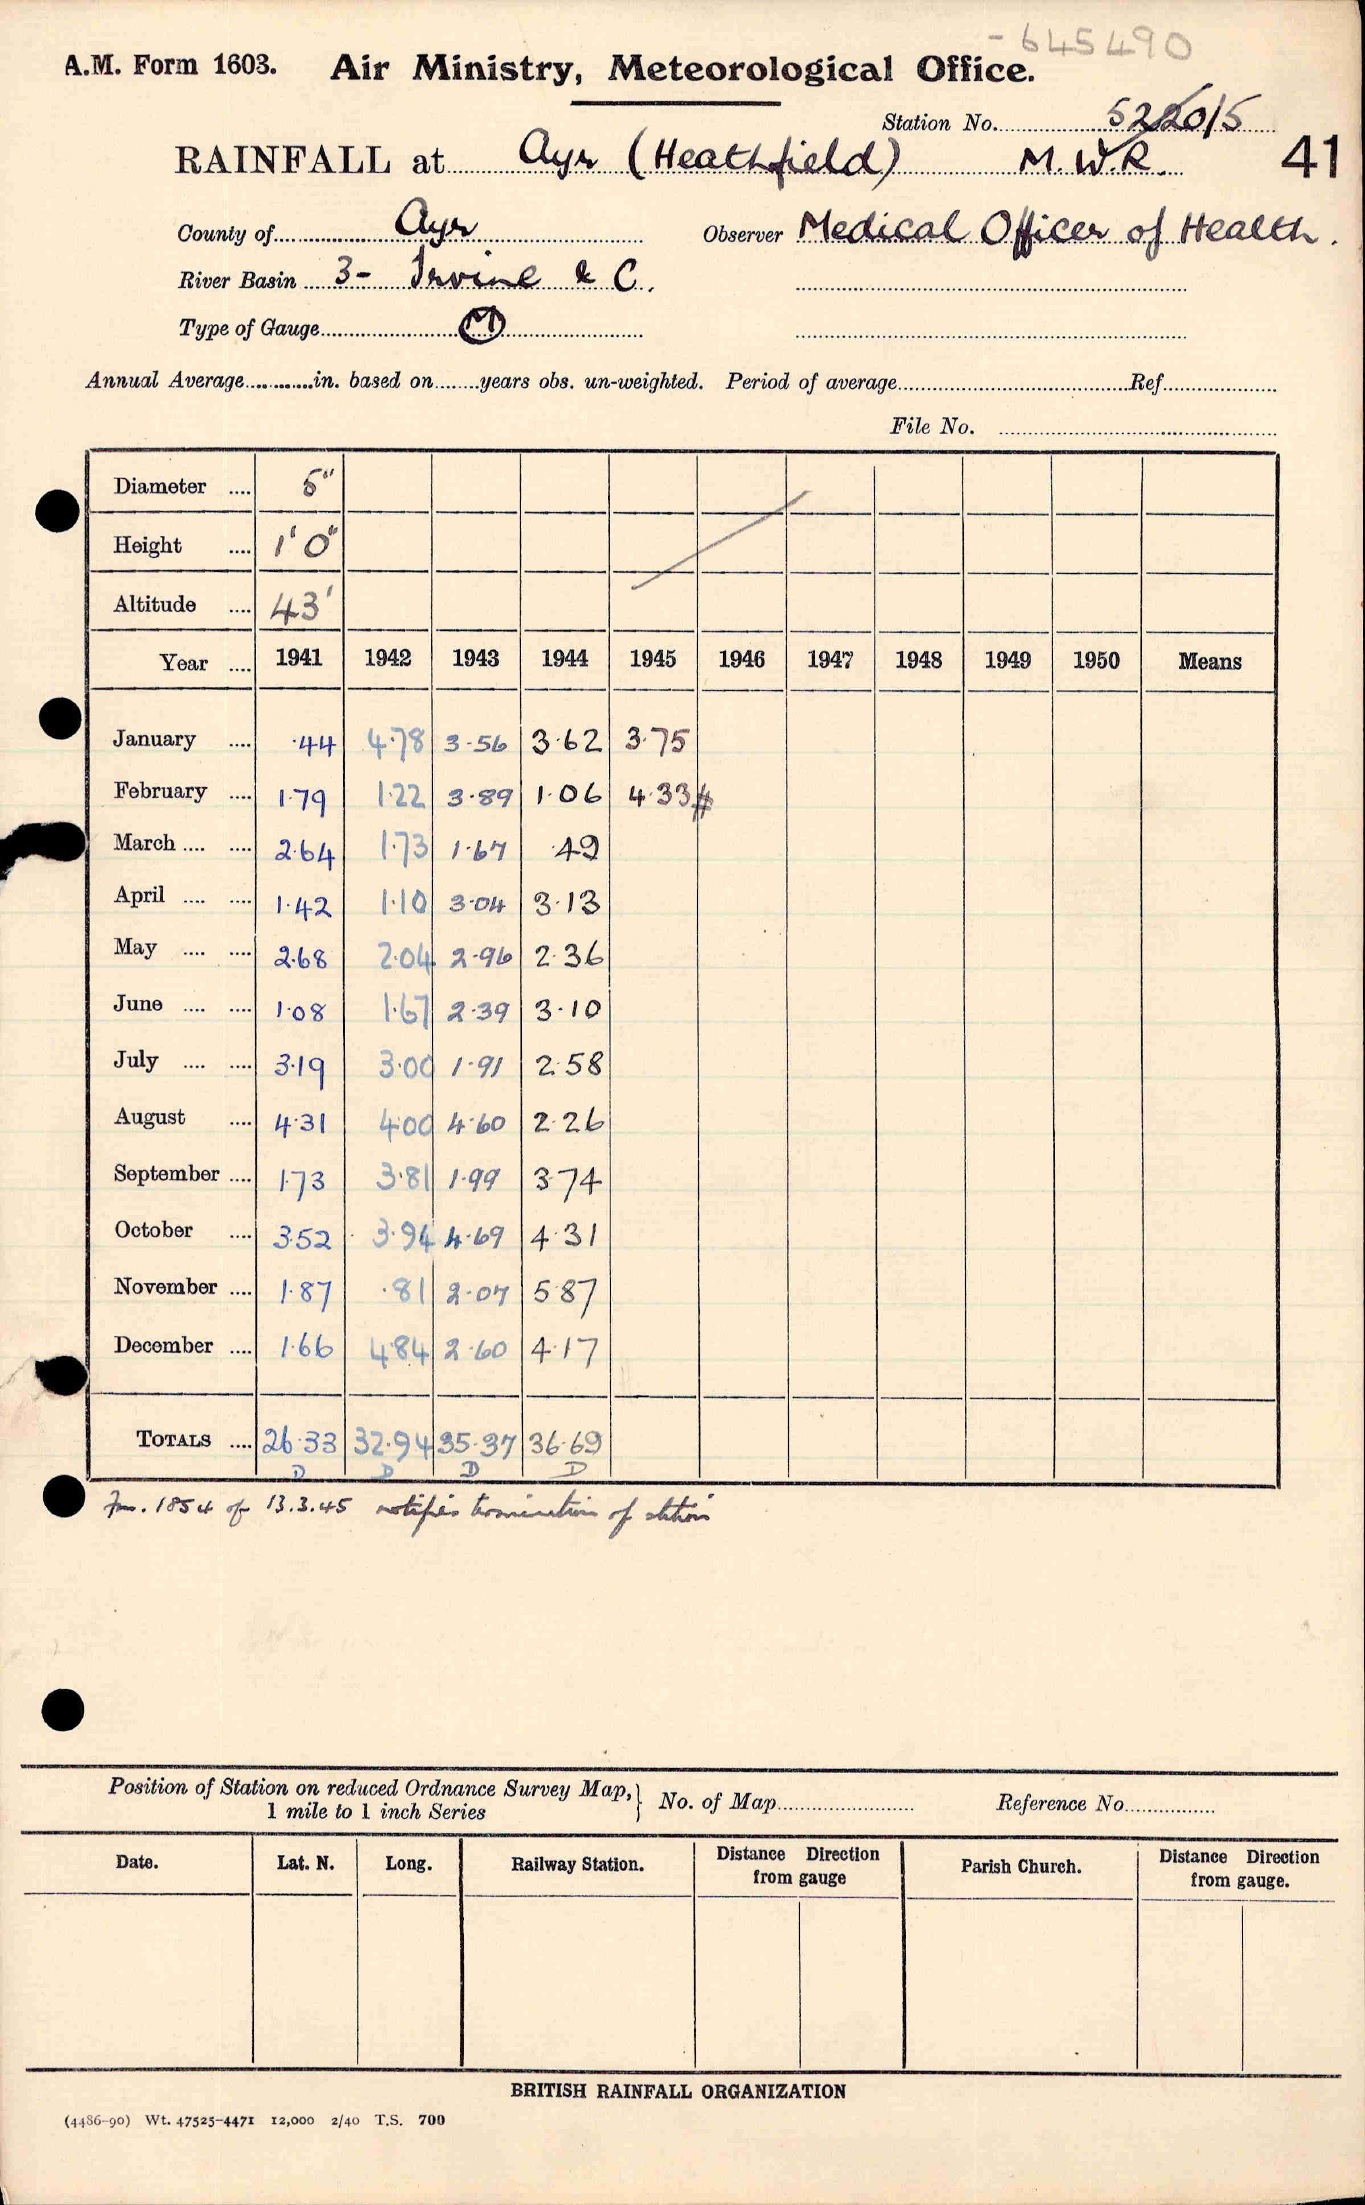 -645490
A.M. Form 1603. Air Ministry, Meteorological Office.
Station No. 522015
RAINFALL at Ayr (Heathfield) M.W.R. 41
County of Ayr Observer Medical Officer of Health.
River Basin 3- Irvine & C.
Type of Gauge M
Annual Average............in. based on........years obs. un-weighted. Period of average Ref
File No.
Diameter .... 5"
Height .... 1' 0"
Altitude .... 43'
Year .... 1941 1942 1943 1944 1945 1946 1947 1948 1949 1950 Means
January .... ·44 4·78 3·56 3·62 3·75
February .... 1·79 1·22 3·89 1·06 4·33#
March .... .... 2·64 1·73 1·67 ·49
April .... .... 1·42 1·10 3·04 3·13
May .... .... 2·68 2·04 2·96 2·36
June .... .... 1·08 1·67 2·39 3·10
July .... .... 3·19 3·00 1·91 2·58
August .... 4·31 4·00 4·60 2·26
September .... 1·73 3·81 1·99 3·74
October .... 3·52 3·94 4·69 4·31
November .... 1·87 ·81 2·07 5·87
December .... 1·66 4·84 2·60 4·17
TOTALS .... 26·33 32·94 35·37 36·69
D D D D
Fm. 1854 of 13.3.45 notifies termination of station
Position of Station on reduced Ordnance Survey Map, } No. of Map Reference No
1 mile to 1 inch Series
Date. Lat. N. Long. Railway Station. Distance Direction from gauge Parish Church. Distance Direction from gauge.
BRITISH RAINFALL ORGANIZATION
(4486-90) Wt. 47525-4471 12,000 2/40 T.S. 700